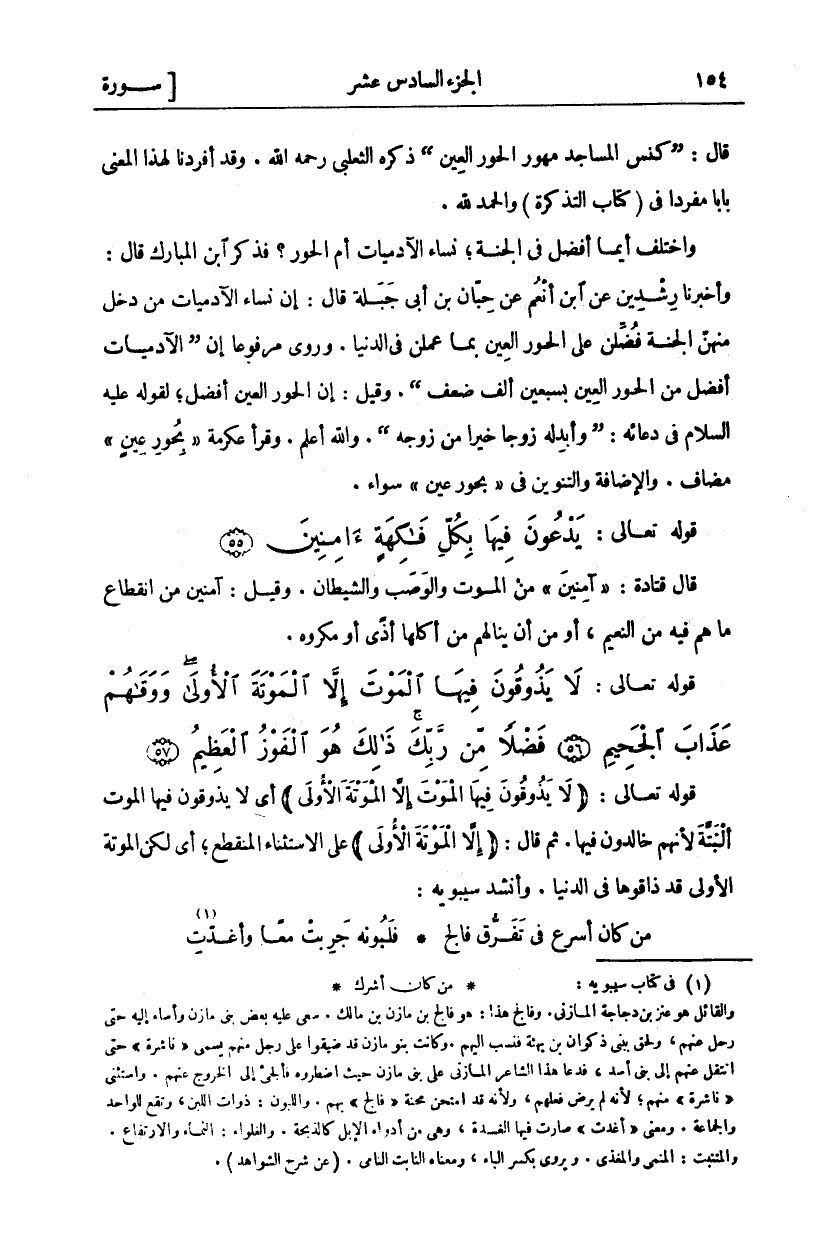 ١٥٤ الجزء السادس عشر [ ســورة
قال : ”كنس المساجد مهور الحور العين“ ذكره الثعلبى رحمه الله . وقد أفردنا لهذا المعنى
بابا مفردا فى ( كتاب التذكرة ) والحمد لله .
واختلف أيما أفضل فى الجنة ؛ نساء الآدميات أم الحور ؟ فذكر آبن المبارك قال :
وأخبرنا رِشْدِين عن آبن أَنْعُم عن حِبّان بن أبى جَبَلة قال : إن نساء الآدميات من دخل
منهنّ الجنة فُضِّلن على الحور العين بما عملن فى الدنيا . وروى مرفوعا إن ”الآدميات
أفضل من الحور العين بسبعين ألف ضعف“ . وقيل : إن الحور العين أفضل ؛ لقوله عليه
السلام فى دعائه : ”وأبدله زوجا خيرا من زوجه“ . والله أعلم . وقرأ عكرمة « بِحُورِ عِينٍ »
مضاف . والإضافة والتنوين فى « بحور عين » سواء .
قوله تعالى : يَدْعُونَ فِيهَا بِكُلِّ فَٰكِهَةٍ ءَامِنِينَ ﴿٥٥﴾
قال قتادة : « آمِنينَ » من الموت والوَصَب والشيطان . وقيل : آمنين من انقطاع
ما هم فيه من النعيم ، أو من أن ينالهم من أكلها أذًى أو مكروه .
قوله تعالى : لَا يَذُوقُونَ فِيهَا ٱلْمَوْتَ إِلَّا ٱلْمَوْتَةَ ٱلْأُولَىٰ ۖ وَوَقَىٰهُمْ
عَذَابَ ٱلْجَحِيمِ ﴿٥٦﴾ فَضْلًا مِّن رَّبِّكَ ۚ ذَٰلِكَ هُوَ ٱلْفَوْزُ ٱلْعَظِيمُ ﴿٥٧﴾
قوله تعالى : ﴿ لَا يَذُوقُونَ فِيهَا الْمَوْتَ إِلَّا الْمَوْتَةَ الْأُولَى ﴾ أى لا يذوقون فيها الموت
ألْبَتَّةَ لأنهم خالدون فيها . ثم قال : ﴿ إِلَّا الْمَوْتَةَ الْأُولَى ﴾ على الاستثناء المنقطع ؛ أى لكن الموتة
الأولى قد ذاقوها فى الدنيا . وأنشد سيبويه :
من كان أسرع فى تَفَرُّق فالج * فلَبُونه جَرِبتْ معًا وأغَدّتِ (١)
(١) فى كتاب سيبويه : * من كان أشرك *
والقائل هو عنز بن دجاجة المازنى . وفالج هذا : هو فالج بن مازن بن مالك . سعى عليه بعض بنى مازن وأساء إليه حتى
رحل عنهم ، ولحق ببنى ذكوان بن بهثة فنسب اليهم . وكانت بنو مازن قد ضيقوا على رجل منهم يسمى « ناشرة » حتى
انتقل عنهم إلى بنى أسد ، فدعا هذا الشاعر المازنى على بنى مازن حيث اضطروه فألجئ إلى الخروج عنهم . واستثنى
« ناشرة » منهم ؛ لأنه لم يرض فعلهم ، ولأنه قد امتحن محنة « فالج » بهم . واللبون : ذوات اللبن ، وتقع للواحد
والجماعة . ومعنى « أغدت » صارت فيها الغدة ، وهى من أدواء الإبل كالذبحة . والغلواء : النماء والارتفاع .
والمتنبت : المنمى والمغذى . ويروى بكسر الباء ، ومعناه النابت النامى . ( عن شرح الشواهد ) .